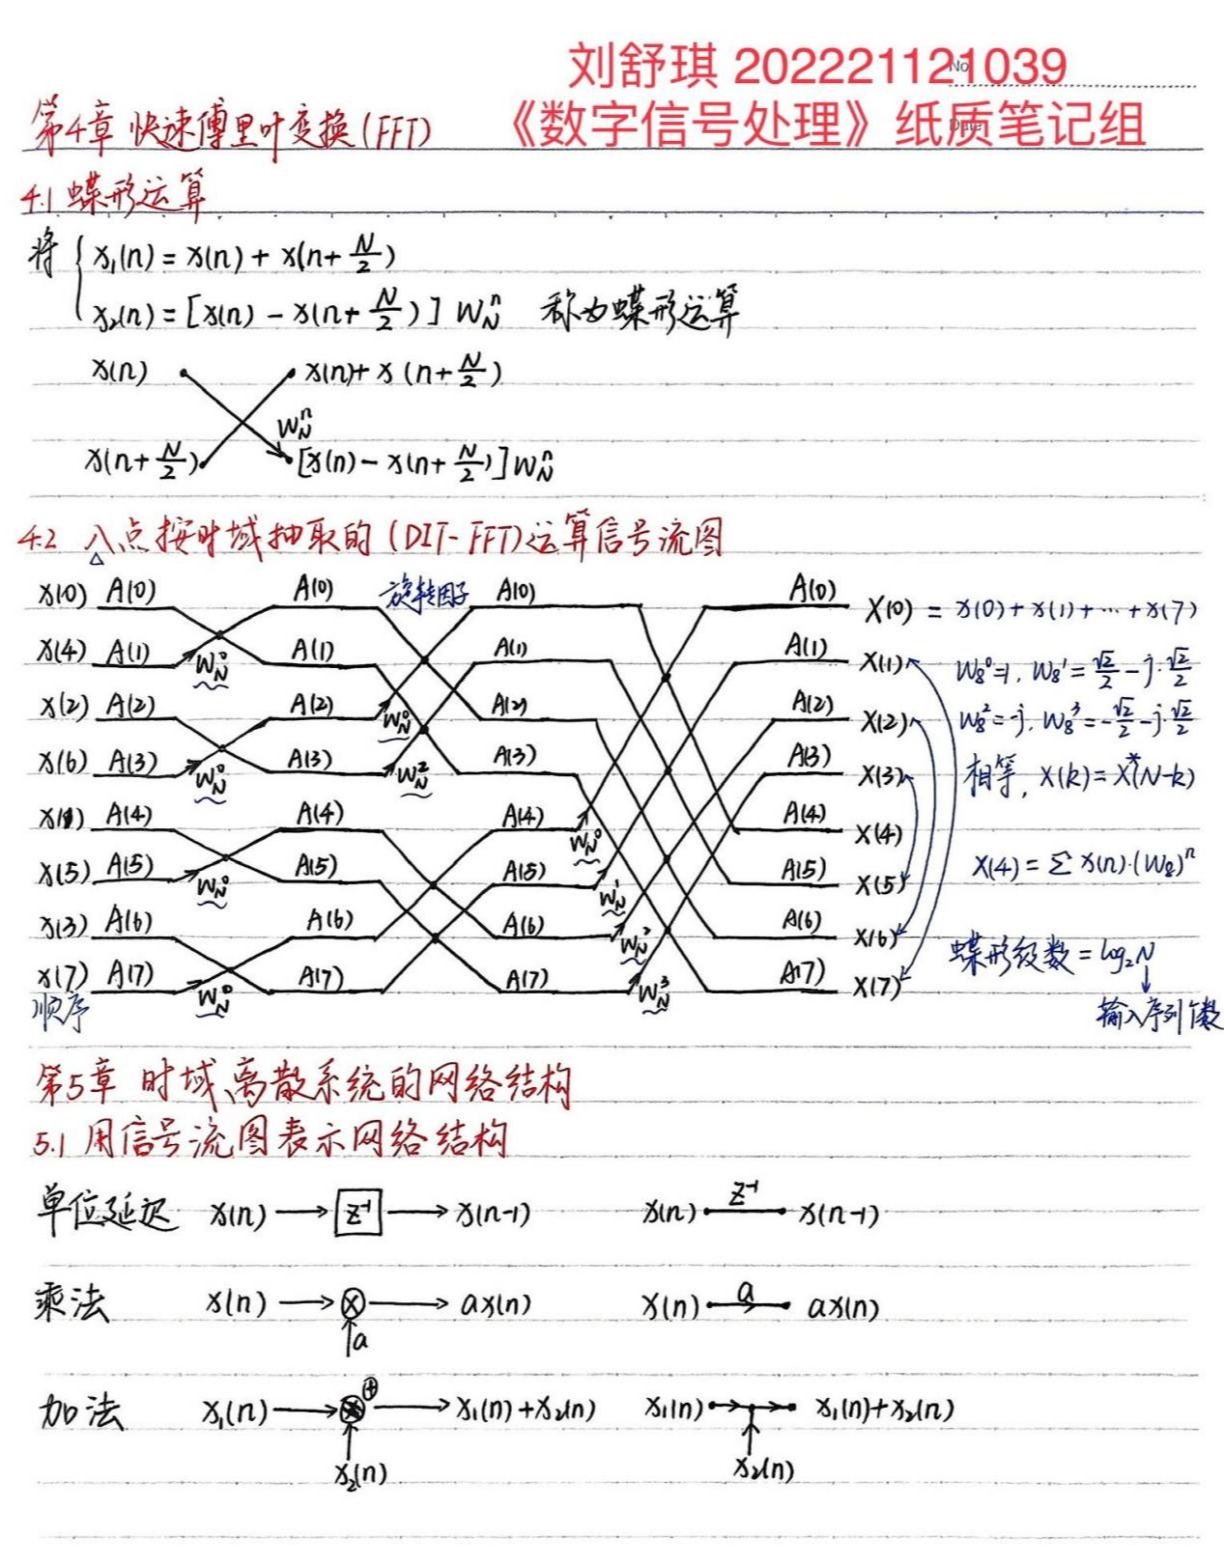 刘舒琪 202221121039
No.
《数字信号处理》纸质笔记组
Date
第4章 快速傅里叶变换(FFT)
4.1 蝶形运算
将 { x₁(n) = x(n) + x(n+N/2)
x₂(n) = [x(n) - x(n+N/2)] W_N^n 称为蝶形运算
x(n) x(n)+x(n+N/2)
W_N^n
x(n+N/2) [x(n)-x(n+N/2)]W_N^n
4.2 八点按时域抽取的(DIT-FFT)运算信号流图
x(0) A(0) A(0) 旋转因子 A(0) A(0) X(0) = x(0)+x(1)+…+x(7)
x(4) A(1) W_N^0 A(1) A(1) A(1) X(1) W_8^0=1, W_8^1=√2/2-j·√2/2
x(2) A(2) A(2) W_N^0 A(2) A(2) X(2) W_8^2=-j, W_8^3=-√2/2-j·√2/2
x(6) A(3) W_N^0 A(3) W_N^2 A(3) A(3) X(3) 相等, X(k)=X*(N-k)
x(1) A(4) A(4) A(4) W_N^0 A(4) X(4)
x(5) A(5) W_N^0 A(5) A(5) W_N^1 A(5) X(5) X(4)=Σx(n)·(W_8)^n
x(3) A(6) A(6) A(6) W_N^2 A(6) X(6) 蝶形级数=log₂N
x(7) A(7) W_N^0 A(7) A(7) W_N^3 A(7) X(7)
顺序 输入序列个数
第5章 时域离散系统的网络结构
5.1 用信号流图表示网络结构
单位延迟 x(n) → z⁻¹ → x(n-1) x(n) z⁻¹ x(n-1)
乘法 x(n) → ⊗ → ax(n) x(n) a ax(n)
↑a
加法 x₁(n) → ⊕ → x₁(n)+x₂(n) x₁(n) x₁(n)+x₂(n)
x₂(n) x₂(n)